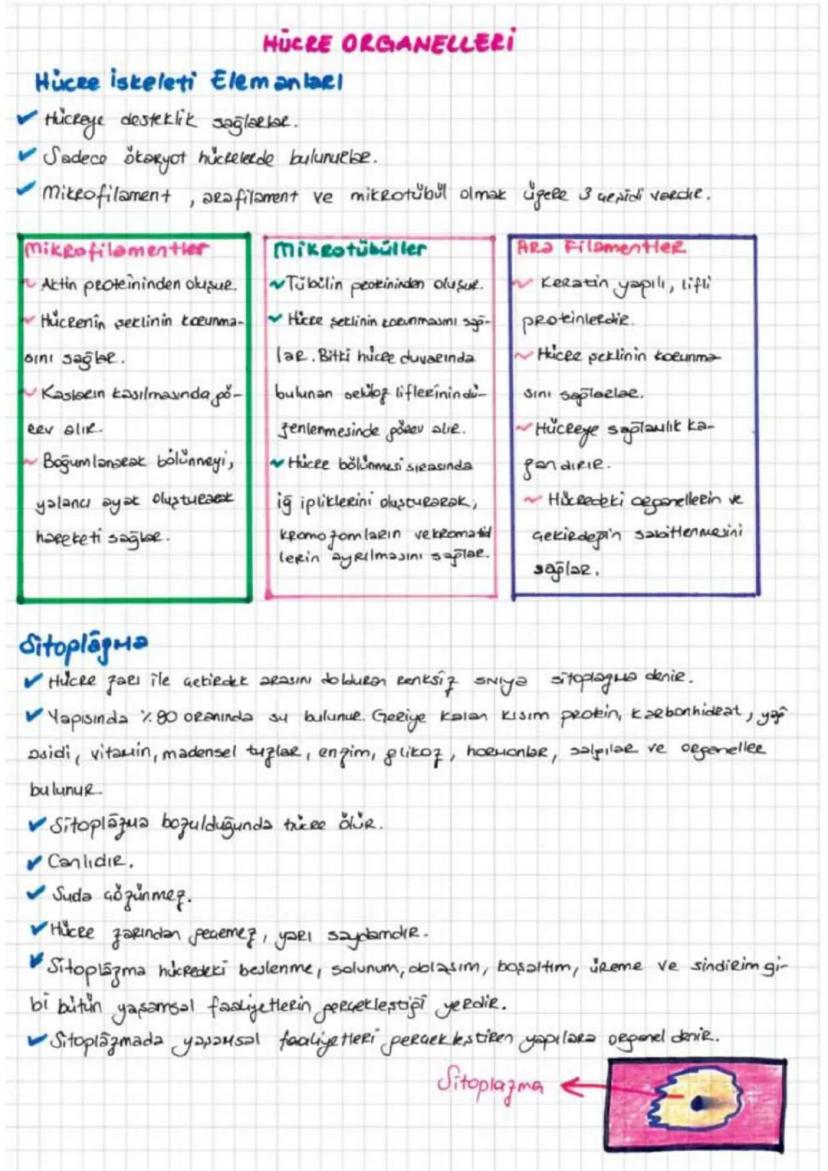 HÜCRE ORGANELLERİ
Hücre İskeleti Elemanları
Hücreye desteklik sağlarlar.
Sadece ökaryot hücrelerde bulunurlar.
Mikrofilament, arafilament ve mikrotübül olmak üzere 3 çeşidi vardır.
Mikrofilamentler
~ Aktin proteininden oluşur.
~ Hücrenin şeklinin korunma-
sını sağlar.
~ Kasların kasılmasında gö-
rev alır.
~ Boğumlanarak bölünmeyi,
yalancı ayak oluşturarak
hareketi sağlar.
Mikrotübüller
~ Tübülin proteininden oluşur.
Hücre şeklinin korunmasını sağ-
lar. Bitki hücre duvarında
bulunan selüloz liflerinin dü-
zenlenmesinde görev alır.
Hücre bölünmesi sırasında
iğ ipliklerini oluşturarak,
kromozomların ve kromatid
lerin ayrılmasını sağlar.
Ara Filamentler
~ Keratin yapılı, lifli
proteinlerdir.
~ Hücre şeklinin korunma-
sını sağlarlar.
~ Hücreye sağlamlık ka-
zandırır.
~ Hücredeki organellerin ve
çekirdeğin sabitlenmesini
sağlar.
Sitoplâzma
Hücre zarı ile çekirdek arasını dolduran renksiz sıvıya sitoplazma denir.
Yapısında %90 oranında su bulunur. Geriye kalan kısım protein, karbonhidrat, yağ
asidi, vitamin, madensel tuzlar, enzim, glikoz, hormonlar, salgılar ve organeller
bulunur.
Sitoplâzma bozulduğunda hücre ölür.
Canlıdır.
Suda çözünmez.
Hücre zarından geçemez, yarı saydamdır.
Sitoplâzma hücredeki beslenme, solunum, dolaşım, boşaltım, üreme ve sindirim gi-
bi bütün yaşamsal faaliyetlerin gerçekleştiği yerdir.
Sitoplâzmada yaşamsal faaliyetleri gerçekleştiren yapılara organel denir.
Sitoplazma